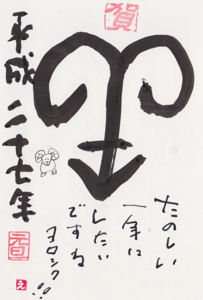 賀
平成二十七年
元旦
たのしい
一年に
したい
ですね
ヨロシク!!
え